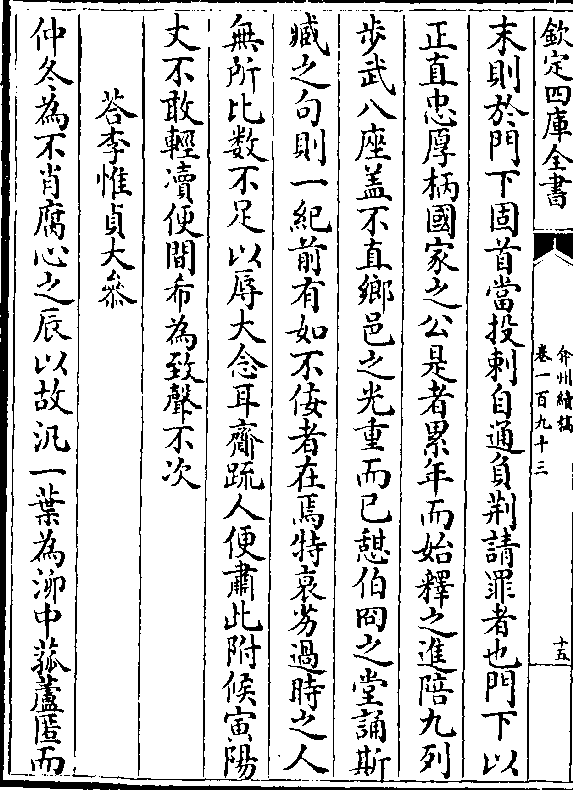 欽定四庫全書
弇州續稿
卷一百九十三
十五
末則於門下固首當投刺自通負荆請罪者也門下以
正直忠厚柄國家之公是者累年而始釋之進陪九列
步武八座盖不直鄉邑之光重而已憇伯冏之堂誦斯
臧之句則一紀前有如不佞者在焉特衰劣過時之人
無所比数不足以辱大念耳齋䟽人便肅此附候寅陽
丈不敢輕凟便間希為致聲不次
荅李惟貞大叅
仲冬為不肖腐心之辰以故汎一葉為泖中菰蘆匿而